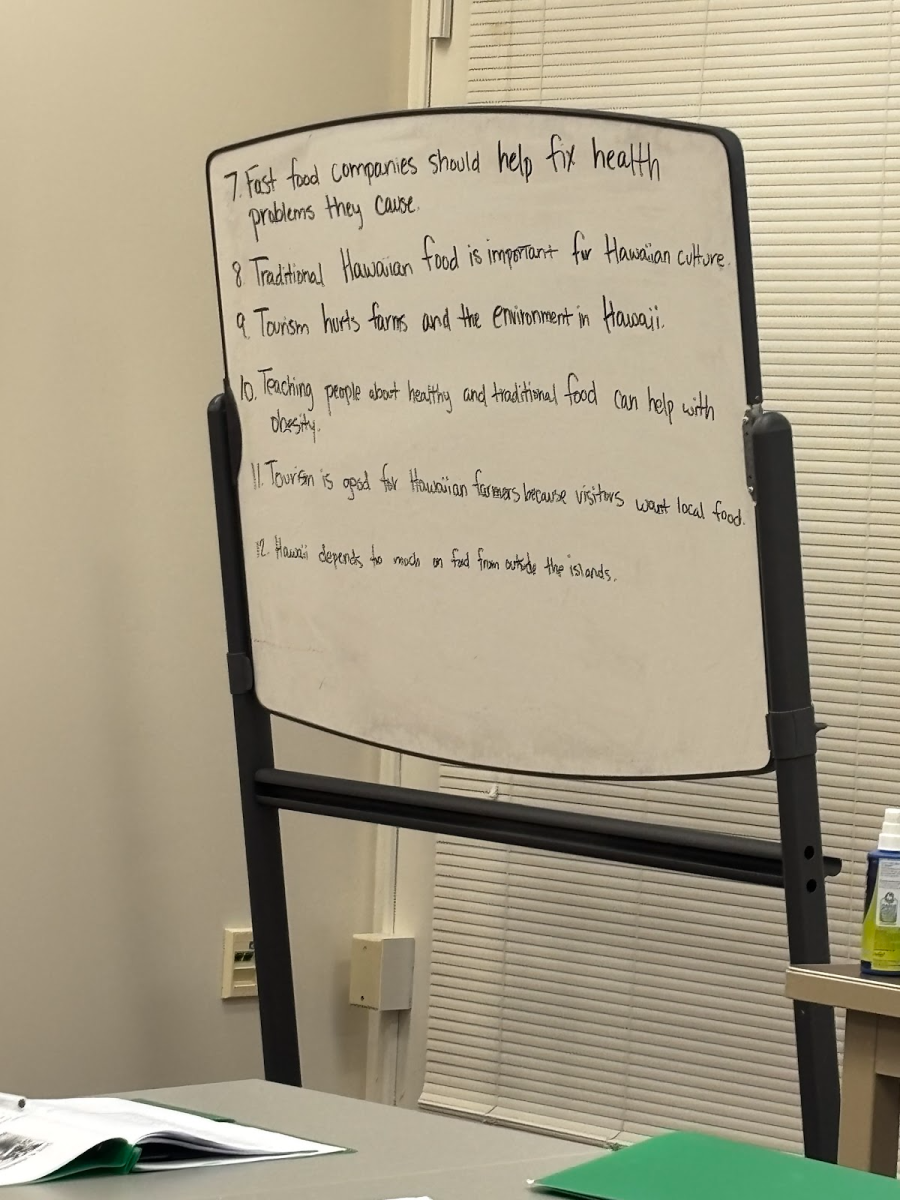 7. Fast food companies should help fix health
problems they cause.
8. Traditional Hawaiian food is important for Hawaiian culture.
9. Tourism hurts farms and the environment in Hawaii.
10. Teaching people about healthy and traditional food can help with
obesity.
11. Tourism is good for Hawaiian farmers because visitors want local food.
12. Hawaii depends to much on food from outside the islands.